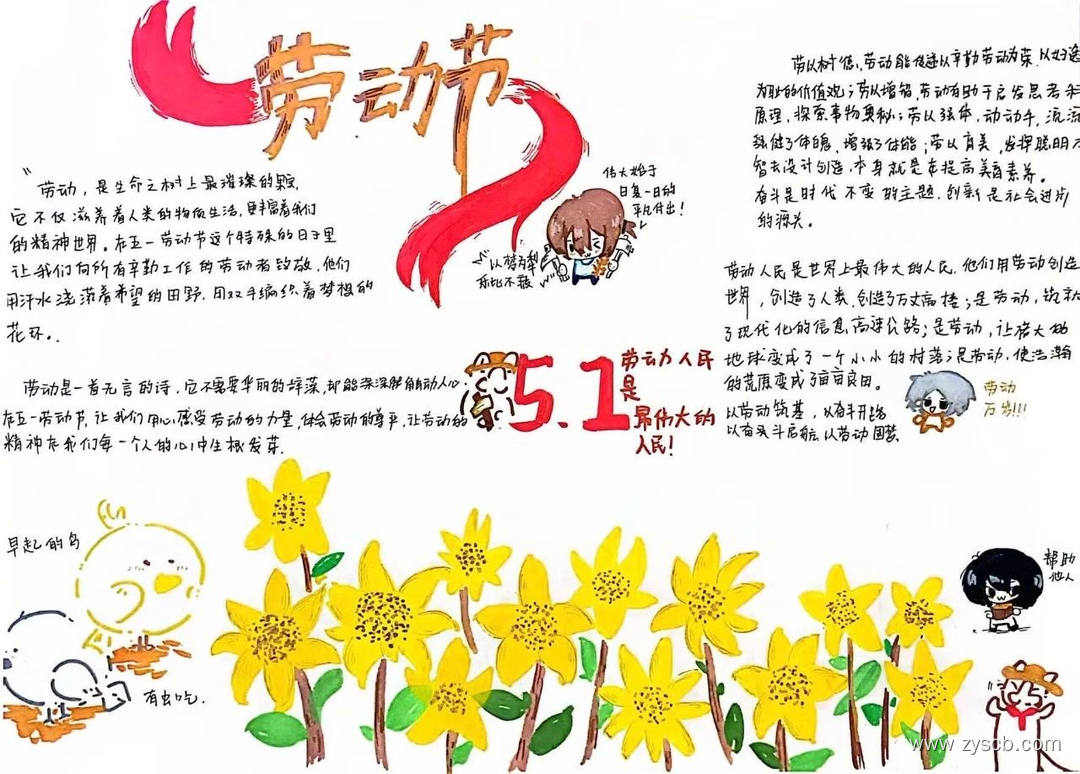 劳动节
"劳动,是生命之树上最璀璨的果,
它不仅滋养着人类的物质生活,更丰富着我们
的精神世界。在五一劳动节这个特殊的日子里
让我们向所有辛勤工作的劳动者致敬,他们
用汗水浇灌着希望的田野,用双手编织着梦想的
花环。
劳动是一首无言的诗,它不需要华丽的辞藻,却能深深触动人心
在五一劳动节,让我们用心感受劳动的力量,体会劳动的尊严,让劳动的
精神在我们每一个人的心中生根发芽.
伟大始于
日复一日的
平凡付出!
以梦为犁
5.1
劳动人民
是
最伟大的
人民!
劳以树德,劳动能促进以辛勤劳动为荣,以好逸
为耻的价值观;劳以增智,劳动有助于启发思考和
原理,探索事物奥秘;劳以强体,动动手,流流
强健了体魄,增强了体能;劳以育美,发挥聪明才
智去设计创造,本身就是在提高美育素养。
奋斗是时代不变的主题,创新是社会进步
的源头。
劳动人民是世界上最伟大的人民,他们用劳动创造
世界,创造了人类,创造了万丈高楼;是劳动,筑就
了现代化的信息高速公路;是劳动,让庞大的
地球变成了一个小小的村落;是劳动,使浩瀚
的荒原变成了亩亩良田。
以劳动筑基,以奋斗开路
以奋斗启航,以劳动圆梦
劳动
万岁!!!
早起的鸟
有虫吃.
帮助
他人
www.zyscb.com